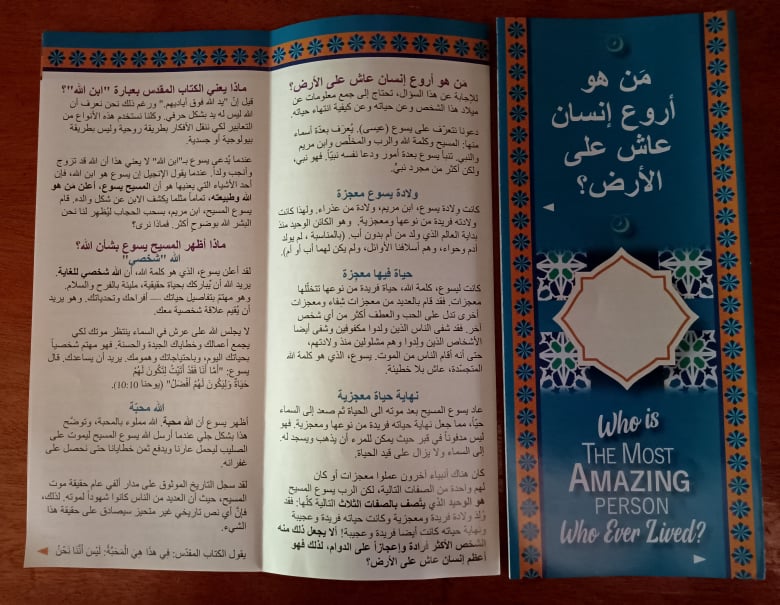 مَن هو
أروع إنسان
عاش على
الأرض؟
Who is
THE MOST
AMAZING
PERSON
Who Ever Lived?
مَن هو أروع إنسان عاش على الأرض؟
للإجابة عن هذا السؤال، تحتاج إلى جمع معلومات عن
ميلاد هذا الشخص وعن حياته وعن كيفية انتهاء حياته.
دعونا نتعرّف على يسوع (عيسى). يُعرَف بعدّة أسماء
منها: المسيح وكلمة الله والرب والمخلّص وابن مريم
والنبي. تنبأ يسوع بعدة أمور ودعا نفسه نبيّاً. فهو نبي،
ولكن أكثر من مجرد نبيّ.
ولادة يسوع معجزة
كانت ولادة يسوع، ابن مريم، ولادة من عذراء. ولهذا كانت
ولادته فريدة من نوعها ومعجزية. وهو الكائن الوحيد منذ
بداية العالم الذي ولد من أم بدون أب. (بالمناسبة ، لم يولد
آدم وحواء، وهم أسلافنا الأوائل، ولم يكن لهما أب أو أم).
حياة فيها معجزة
كانت ليسوع، كلمة الله، حياة فريدة من نوعها تتخلّلها
معجزات. فقد قام بالعديد من معجزات شفاء ومعجزات
أخرى تدل على الحب والعطف أكثر من أي شخص
آخر. فقد شفى الناس الذين ولدوا مكفوفين وشفى أيضا
الأشخاص الذين ولدوا وهم مشلولين منذ ولادتهم،
حتى أنه أقام الناس من الموت. يسوع، الذي هو كلمة الله
المتجسّدة، عاش بلا خطيئة.
نهاية حياة معجزية
عاد يسوع المسيح بعد موته الى الحياة ثم صعد إلى السماء
حيّاً، مما جعل نهاية حياته فريدة من نوعها ومعجزية. فهو
ليس مدفوناً في قبر حيث يمكن للمرء أن يذهب ويسجد له.
إلى السماء ولا يزال على قيد الحياة.
كان هناك أنبياء آخرون عملوا معجزات أو كان
لهم واحدة من الصفات التالية، لكن الرب يسوع المسيح
هو الوحيد الذي يتّصف بالصفات الثلاث التالية كلّها: فقد
وُلدَ ولادة فريدة ومعجزية وكانت حياته فريدة وعجيبة
ونهاية حياته كانت أيضا فريدة وعجيبة! ألا يجعل ذلك منه
الشخص الأكثر فرادة وإعجازاً على الدوام، لذلك فهو
أعظم إنسان عاش على الأرض؟
ماذا يعني الكتاب المقدس بعبارة "ابن الله"؟
قيل إنّ "يد الله فوق أياديهم." ورغم ذلك نحن نعرف أن
الله ليس له يد بشكل حرفي. وكلنا نستخدم هذه الأنواع من
التعابير لكي ننقل الأفكار بطريقة روحية وليس بطريقة
بيولوجية أو جسدية.
عندما يُدعي يسوع بـ"ابن الله" لا يعني هذا أن الله قد تزوج
وأنجب ولداً. عندما يقول الإنجيل إن يسوع هو ابن الله، فإن
أحد الأشياء التي يعنيها هو أن المسيح يسوع، أعلن من هو
الله وطبيعته، تماماً مثلما يكشف الابن عن شكل والده. قام
يسوع المسيح، ابن مريم، بسحب الحجاب ليُظهر لنا نحن
البشر الله بوضوح أكثر. فماذا نرى؟
ماذا أظهر المسيح يسوع بشأن الله؟
الله "شخصي"
لقد أعلن يسوع، الذي هو كلمة الله، أن الله شخصي للغاية.
يريد الله أن يُباركك بحياة حقيقية، مليئة بالفرح والسلام.
وهو مهتمّ بتفاصيل حياتك — أفراحك وتحدياتك. وهو يريد
أن يُقيم علاقة شخصية معك.
لا يجلس الله على عرش في السماء ينتظر موتك لكي
يجمع أعمالك وخطاياك الجيدة والحسنة. فهو مهتمّ شخصياً
بحياتك اليوم، وباحتياجاتك وهمومك. يريد أن يساعدك. قال
يسوع: "أَمَّا أَنَا فَقَدْ أَتَيْتُ لِتَكُونَ لَهُمْ
حَيَاةٌ وَلِيَكُونَ لَهُمْ أَفْضَلُ" (يوحنا 10:10).
الله محبّة
أظهر يسوع أن الله محبة. الله مملوء بالمحبة، وتوضّح
هذا بشكل جلي عندما أرسل الله يسوع المسيح ليموت على
الصليب ليحمل عارنا ويدفع ثمن خطايانا حتى نحصل على
غفرانه.
لقد سجل التاريخ الموثوق على مدار ألفي عام حقيقة موت
المسيح، حيث أن العديد من الناس كانوا شهوداً لموته. لذلك،
فإنَّ أي نص تاريخي غير متحيز سيصادق على حقيقة هذا
الشيء.
يقول الكتاب المقدّس: فِي هذَا هِيَ الْمَحَبَّةُ: لَيْسَ أَنَّنَا نَحْنُ